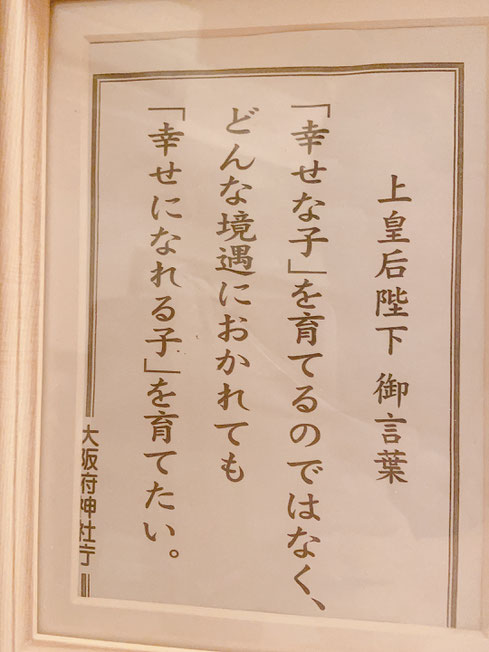 上皇后陛下 御言葉
「幸せな子」を育てるのではなく、
どんな境遇におかれても
「幸せになれる子」を育てたい。
大阪府神社庁